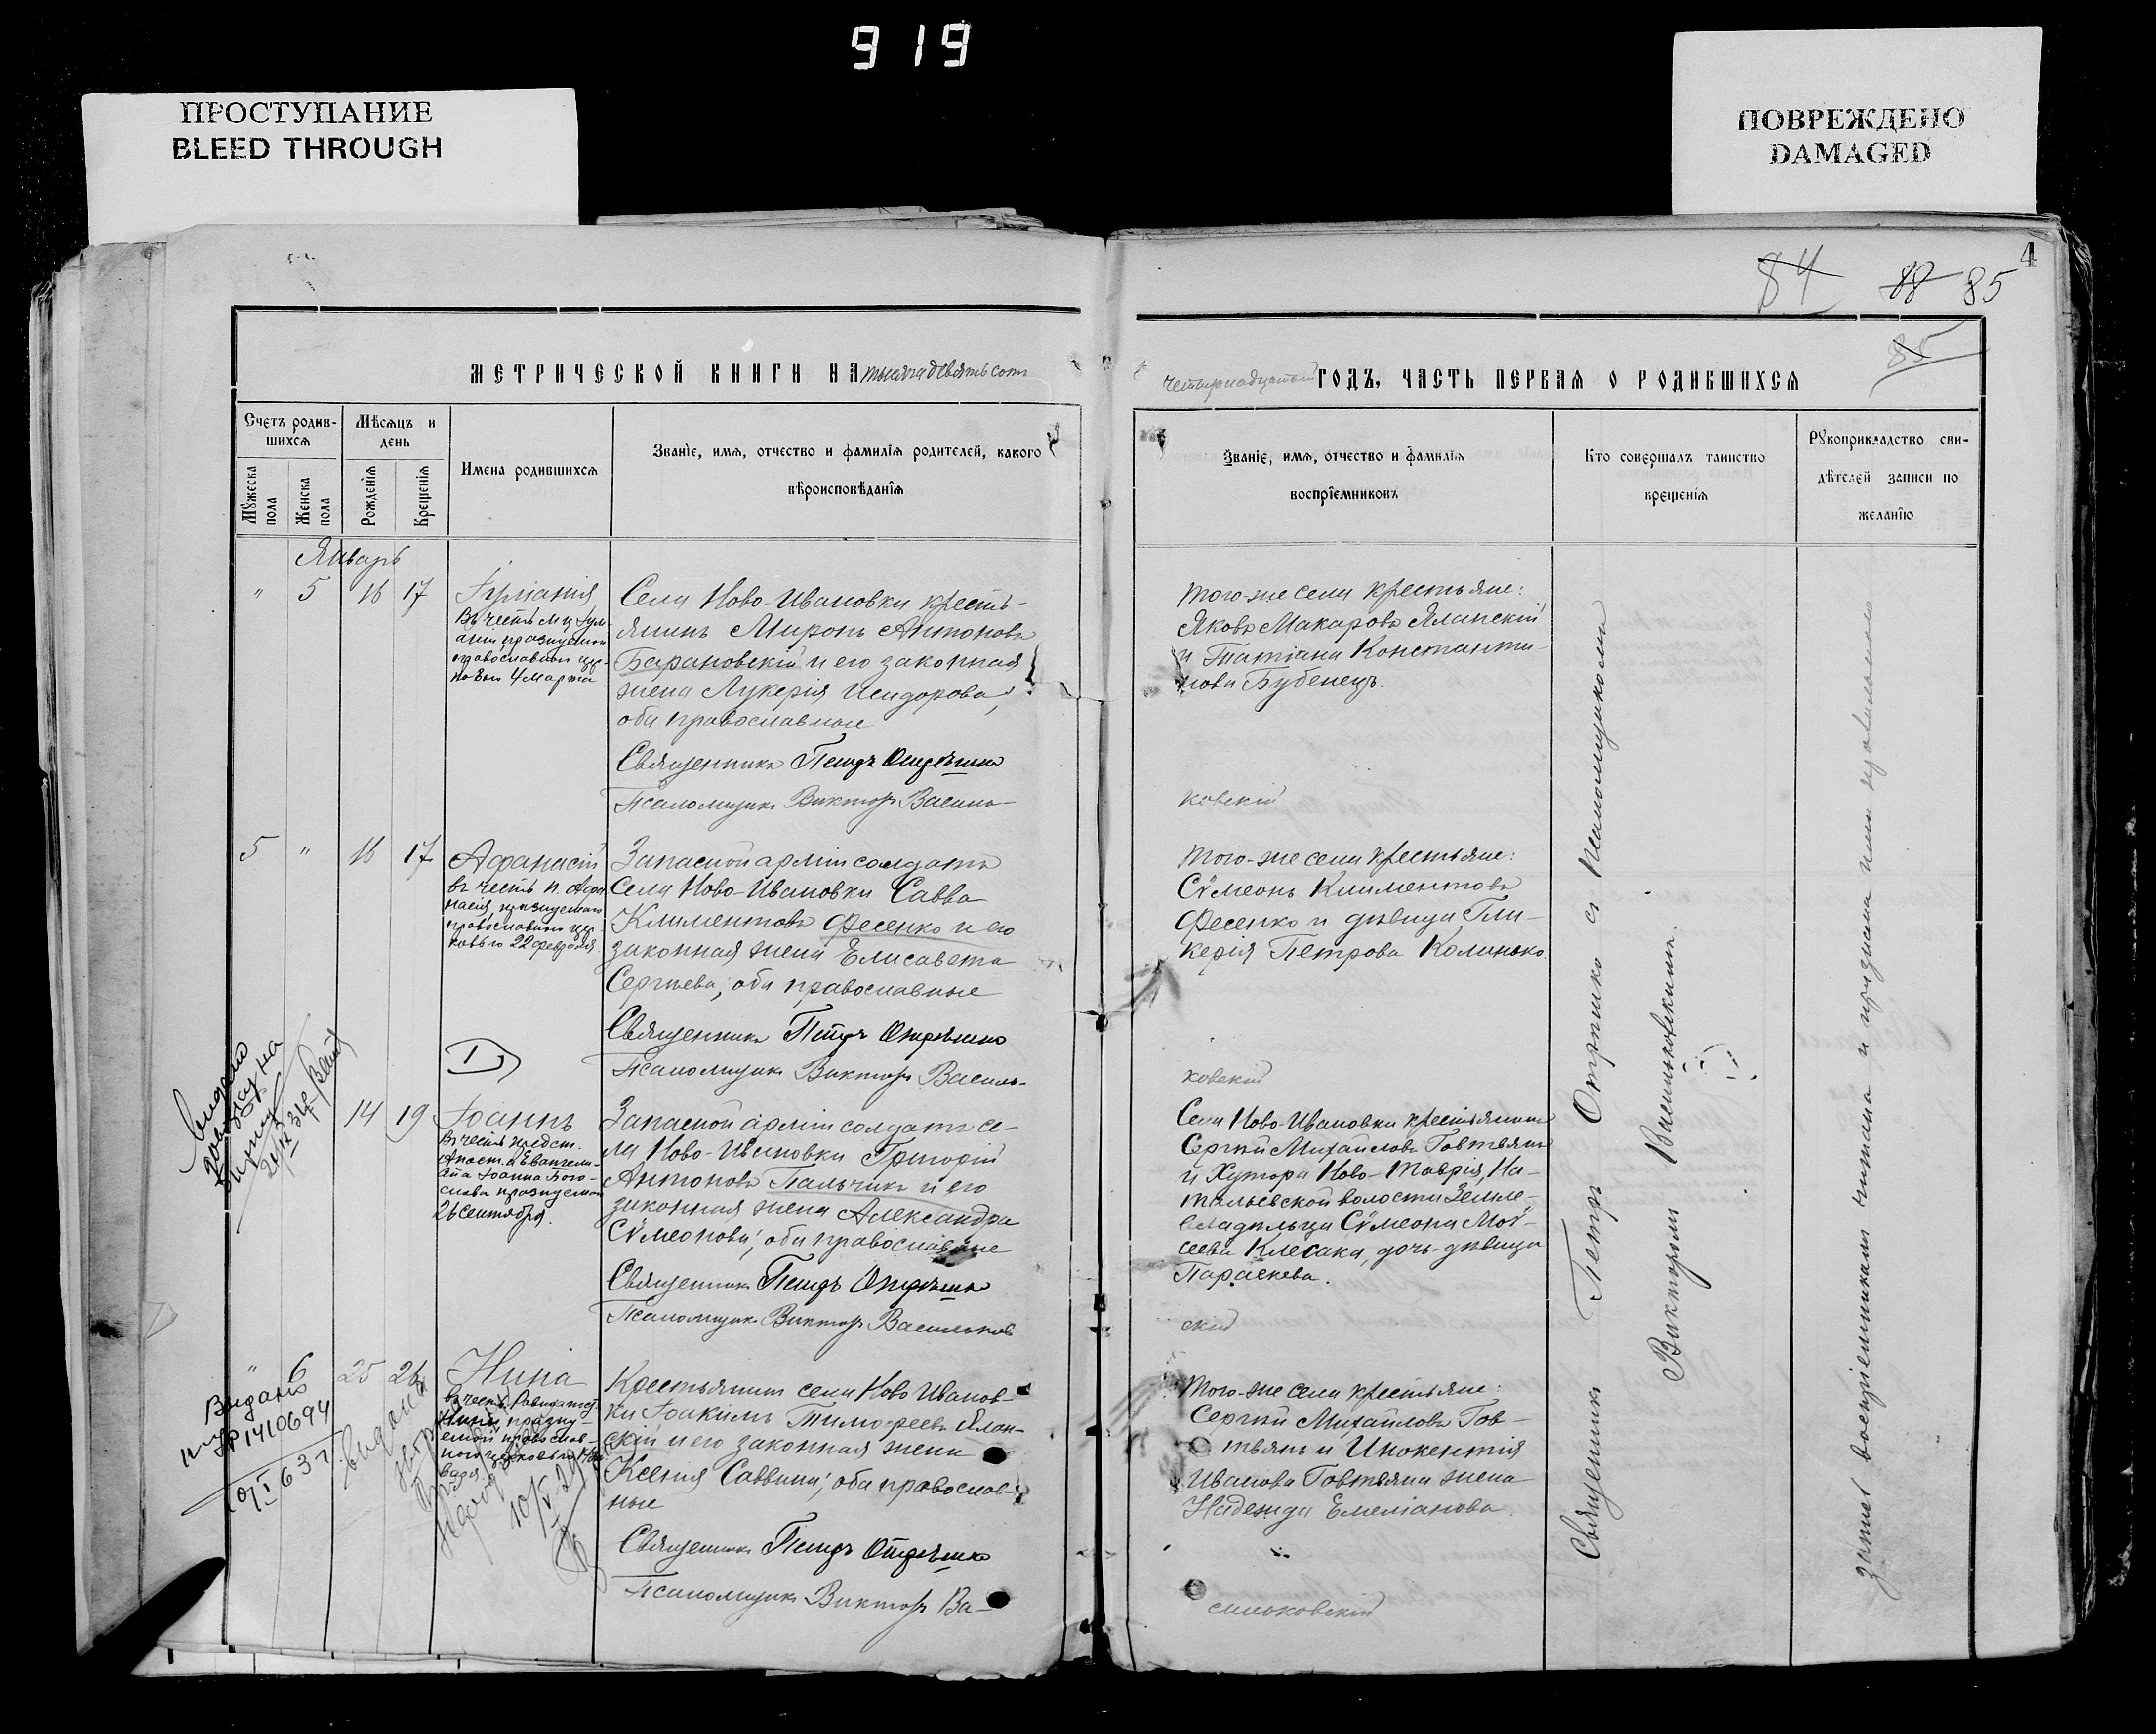 919
ПРОСТУПАНИЕ
BLEED THROUGH
ПОВРЕЖДЕНО
DAMAGED
4
84 88 85
85
МЕТРИЧЕСКОЙ КНИГИ НА тысяча девятьсот
четырнадцатый ГОДЪ, ЧАСТЬ ПЕРВАЯ О РОДИВШИХСЯ
Счетъ родив-
шихся
Мѣсяцъ и
день
Мужеска пола
Женска пола
Рожденія
Крещенія
Имена родившихся
Званіе, имя, отчество и фамилія родителей, какого
вѣроисповѣданія
Званіе, имя, отчество и фамилія
воспріемниковъ
Кто совершалъ таинство
крещенія
Рукоприкладство сви-
дѣтелей записи по
желанію
Январь
" 5 16 17
Іуліанія
Въ честь мц Іул-
аніи празнуемой
православною цер-
ковью 4 Марта
Села Ново-Ивановки кресть-
янинъ Миронъ Антоновъ
Барановскій и его законная
жена Лукерія Исидорова,
оба православные
Священникъ Петръ Отрѣшко
Псаломщикъ Викторъ Василь-
Того-же села крестьяне:
Яковъ Макаровъ Яланскій
и Татіана Константи-
нова Бубенецъ.
ковскій
5 " 16 17
Афанасій
въ честь п. Афа-
насія празнуемаго
православною цер-
ковью 22 февраля
Запасной арміи солдатъ
села Ново-Ивановки Савва
Климентовъ Фесенко и его
законная жена Елисавета
Сергіева, оба православные
Священникъ Петръ Отрѣшко
Псаломщикъ Викторъ Василь-
Того-же села крестьяне:
Сѵмеонъ Климентовъ
Фесенко и дѣвица Гли-
керія Петрова Колинько.
ковскій
1
14 19
Іоаннъ
Въ честь
Апост. и Евангели-
ста Іоанна Бого-
слова празнуемаго
26 Сентября.
Запасной арміи солдатъ се-
ла Ново-Ивановки Григорій
Антоновъ Пальчикъ и его
законная жена Александра
Сѵмеонова, оба православные
Священникъ Петръ Отрѣшко
Псаломщикъ Викторъ Васильков
Села Ново-Ивановки крестьянинъ
Сергій Михайловъ Говтвянъ
и Хутора Ново-Таврія, На-
тальевской волости Земле-
владѣльца Сѵмеона Мои-
сеева Клесака, дочь-дѣвица
Параскева.
скій
" 6 25 26
Нина
въ честь Равноапос
Нины, празну-
емой православ-
ною церковью 14 Ян-
варя
Крестьянинъ села Ново Иванов-
ки Іоакимъ Тимофеевъ Ялан-
скій и его законная жена
Ксенія Саввина, оба православ-
ные
Священникъ Петръ Отрѣшко
Псаломщикъ Викторъ Ва-
Того-же села крестьяне:
Сергій Михайловъ Гов-
твянъ и Инокентія
Иванова Говтвяна жена
Надежда Емеліанова.
сильковскій
Священникъ Петръ Отрѣшко съ Псаломщикомъ
Викторомъ Васильковскимъ.
Видано
довідку на
Видано
№ 1410694
видана
10/V